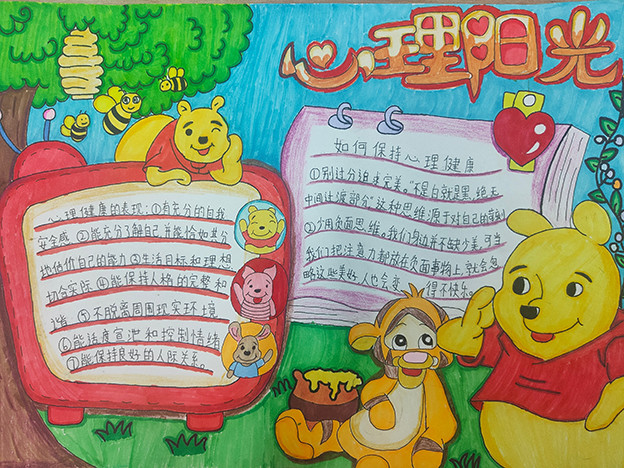 心理阳光
心理健康的表现：①有充分的自我
安全感 ②能充分了解自己，并能恰如其分
地估价自己的能力 ③生活目标和理想
切合实际 ④能保持人格的完整和
谐 ⑤不脱离周围现实环境
⑥能适度宣泄和控制情绪
⑦能保持良好的人际关系。
如何保持心理健康
①别过分追求完美。"不是白就是黑，绝无
中间过渡部分"这种思维源于对自己的苛刻
②少用负面思维。我们身边并不缺少美，可当
我们把注意力都放在负面事物上，就会忽
略这些美好，人也会变 得不快乐。